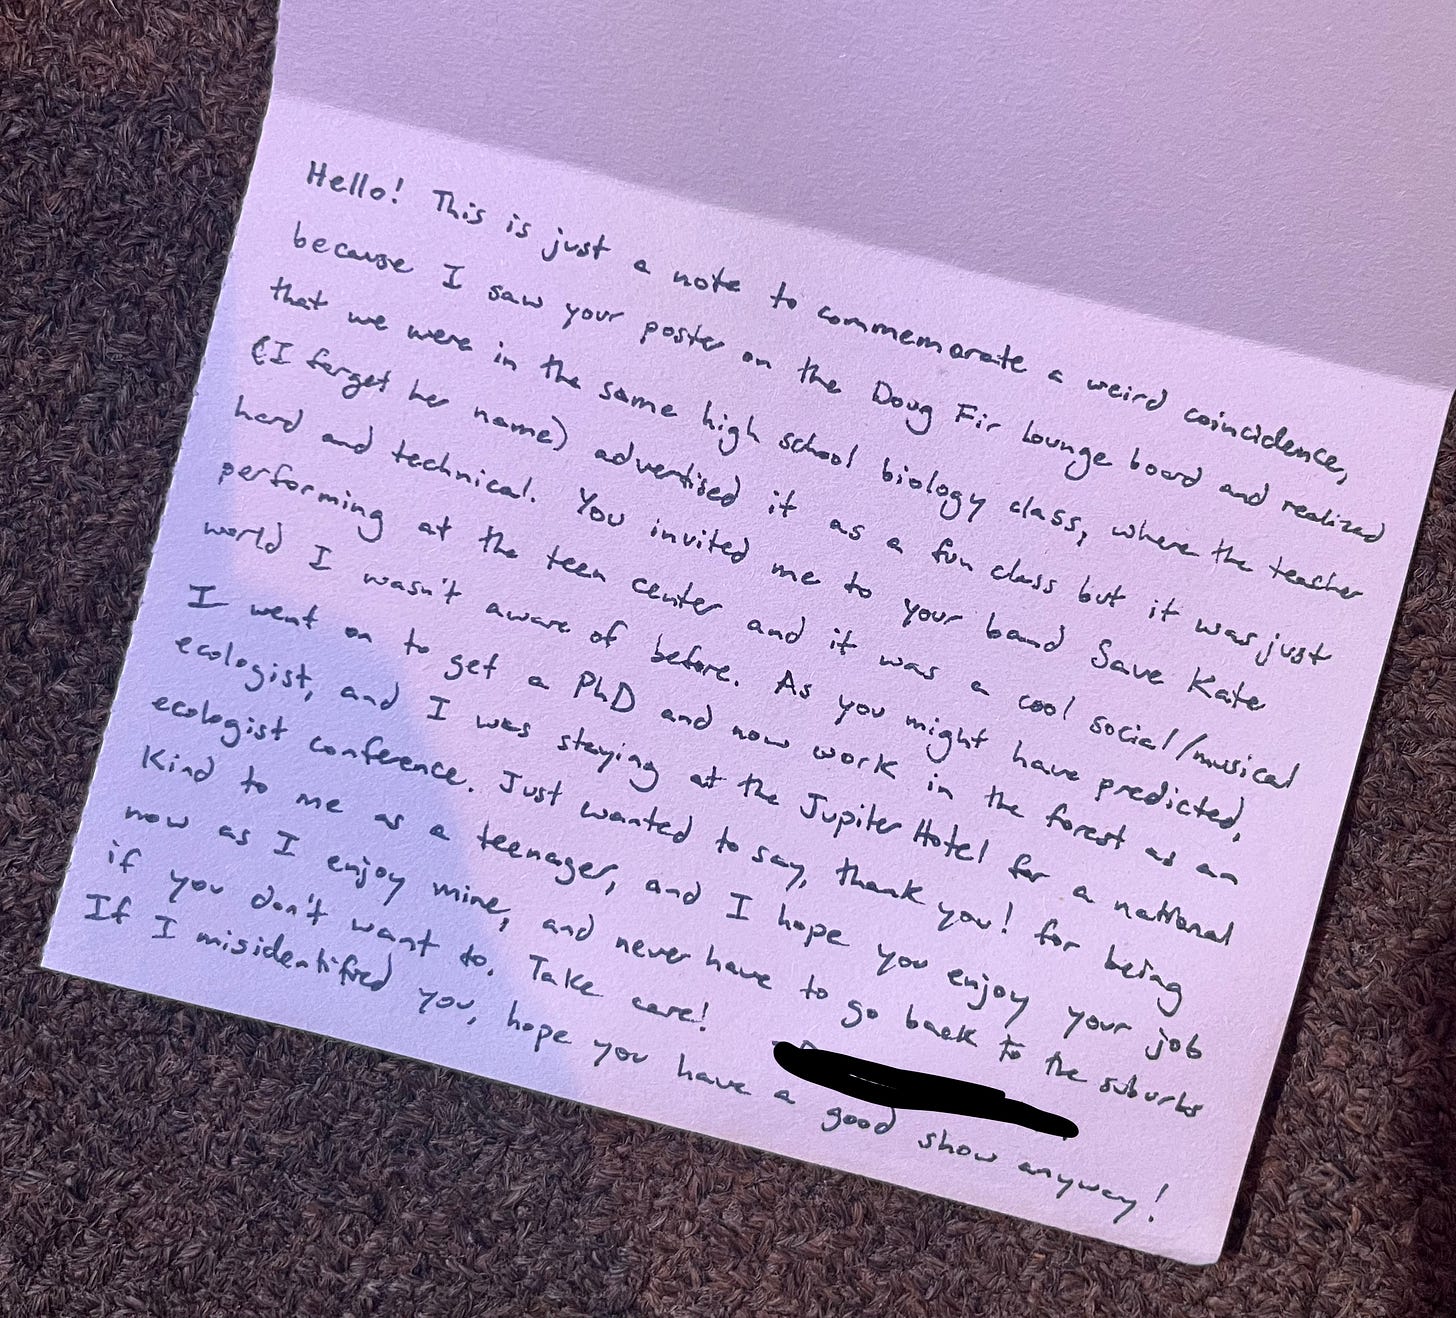 Hello! This is just a note to commemorate a weird coincidence,
because I saw your poster on the Doug Fir Lounge board and realized
that we were in the same high school biology class, where the teacher
(I forget her name) advertised it as a fun class but it was just
hard and technical. You invited me to your band Save Kate
performing at the teen center and it was a cool social/musical
world I wasn't aware of before. As you might have predicted,
I went on to get a PhD and now work in the forest as an
ecologist, and I was staying at the Jupiter Hotel for a national
ecologist conference. Just wanted to say, thank you! for being
kind to me as a teenager, and I hope you enjoy your job
now as I enjoy mine, and never have to go back to the suburbs
if you don't want to. Take care!
If I misidentified you, hope you have a good show anyway!